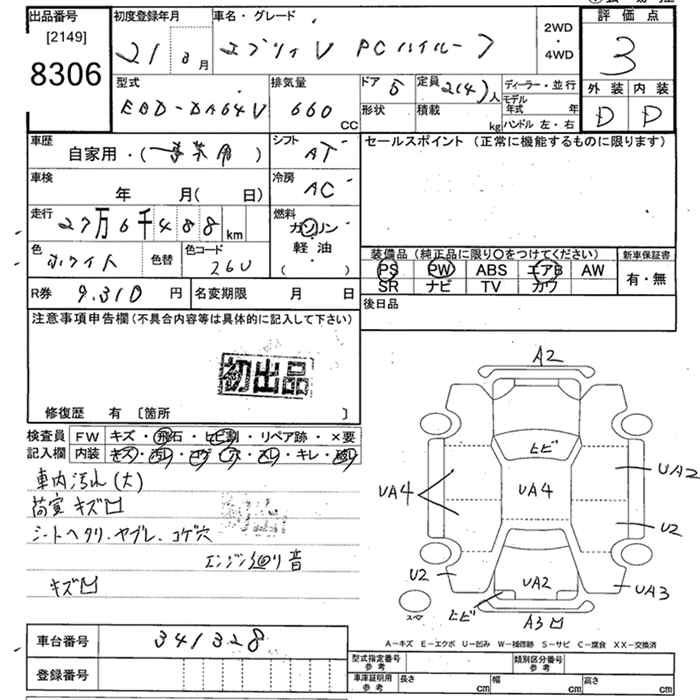 出品番号 初度登録年月 車名・グレード 評価点
[2149]
8306 21 8月 エブリィV PCハイルーフ 2WD・4WD 3
型式 排気量 ドア 5 定員 2(4)人 ディーラー・並行 外装 内装
EBD-DA64V 660 CC 形状 積載 kg モデル年式 年 D D
ハンドル 左・右
車歴 自家用・(事業用) シフト AT セールスポイント (正常に機能するものに限ります)
車検 年 月( 日) 冷房 AC
走行 27万6千488km 燃料 ガソリン
軽油
( )
色 ホワイト 色替 色コード 26U 装備品 (純正品に限り〇をつけてください) 新車保証書
PS PW ABS エアB AW 有・無
SR ナビ TV カワ
R券 9,310円 名変期限 月 日 後日品
注意事項申告欄 (不具合内容等は具体的に記入して下さい)
初出品
修復歴 有 〔箇所 〕
検査員記入欄 FW キズ・飛石・ヒビ割・リペア跡・×要
内装 キズ・汚レ・コゲ・穴・スレ・キレ・破レ
車内汚れ(大)
荷室キズ凹
シートヘタリ、ヤブレ、コゲ穴
エンジン回り音
キズ凹
A2
ヒビ
UA4 UA4 UA2
U2
U2 UA2 UA3
スペア ヒビ A3凹
A-キズ E-エクボ U-凹み W-補修跡 S-サビ C-腐食 XX-交換済
車台番号 341328
登録番号
型式指定番号 参考 類別区分番号 参考
車庫証明用 参考 長さ cm 幅 cm 高さ cm